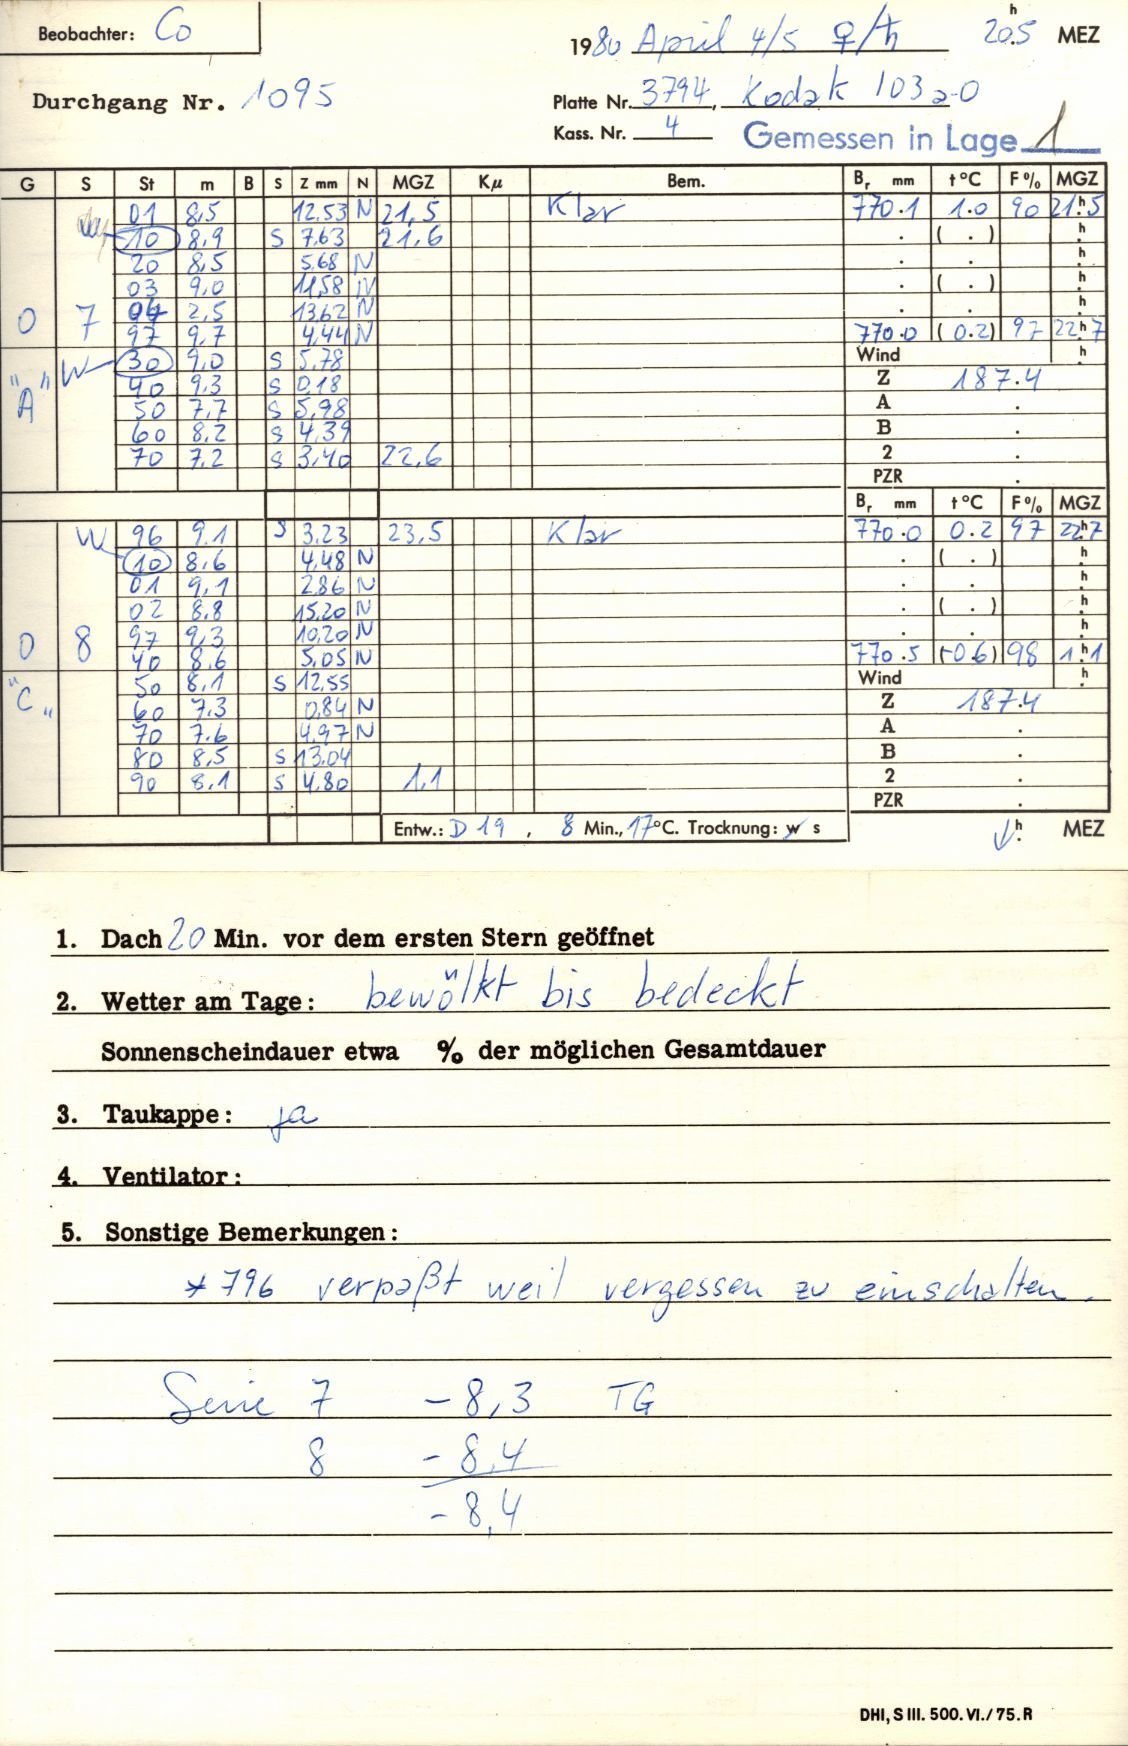 Beobachter: Co
1980 April 4/5 ♀/♄ 20.5 h MEZ
Durchgang Nr. 1095
Platte Nr. 3794, Kodak 103 a-O
Kass. Nr. 4 Gemessen in Lage 1
G S St m B S Z mm N MGZ Kμ Bem. Br mm t °C F % MGZ
01 8,5 12,53 N 21,5 Klar 770.1 1.0 90 21h5
10 8,9 S 7,63 21,6 . ( . ) h
20 8,5 5,68 N . . h
03 9,0 11,58 N . ( . ) h
0 7 04 2,5 13,62 N . . h
97 9,7 4,44 N 770.0 (0.2) 97 22h7
"A" W 30 9,0 S 5,78 Wind h
40 9,3 S 0,18 Z 187.4
50 7,7 S 5,98 A .
60 8,2 S 4,39 B .
70 7,2 S 3,40 22,6 2 .
PZR .
Br mm t °C F % MGZ
W 96 9,1 S 3,23 23,5 Klar 770.0 0.2 97 22h7
10 8,6 4,48 N . ( . ) h
01 9,1 2,86 N . . h
02 8,8 15,20 N . ( . ) h
0 8 97 9,3 10,20 N . . h
40 8,6 5,05 N 770.5 (-0.6) 98 1h1
"C" 50 8,1 S 12,55 Wind h
60 7,3 0,84 N Z 187.4
70 7,6 4,97 N A .
80 8,5 S 13,04 B .
90 8,1 S 4,80 1,1 2 .
PZR .
Entw.: D 19, 8 Min., 17°C. Trocknung: w s h MEZ
1. Dach 20 Min. vor dem ersten Stern geöffnet
2. Wetter am Tage: bewölkt bis bedeckt
Sonnenscheindauer etwa % der möglichen Gesamtdauer
3. Taukappe: ja
4. Ventilator:
5. Sonstige Bemerkungen:
* 796 verpaßt weil vergessen zu einschalten.
Serie 7 -8,3 TG
8 -8,4
-8,4
DHI, S III. 500. VI./75. R